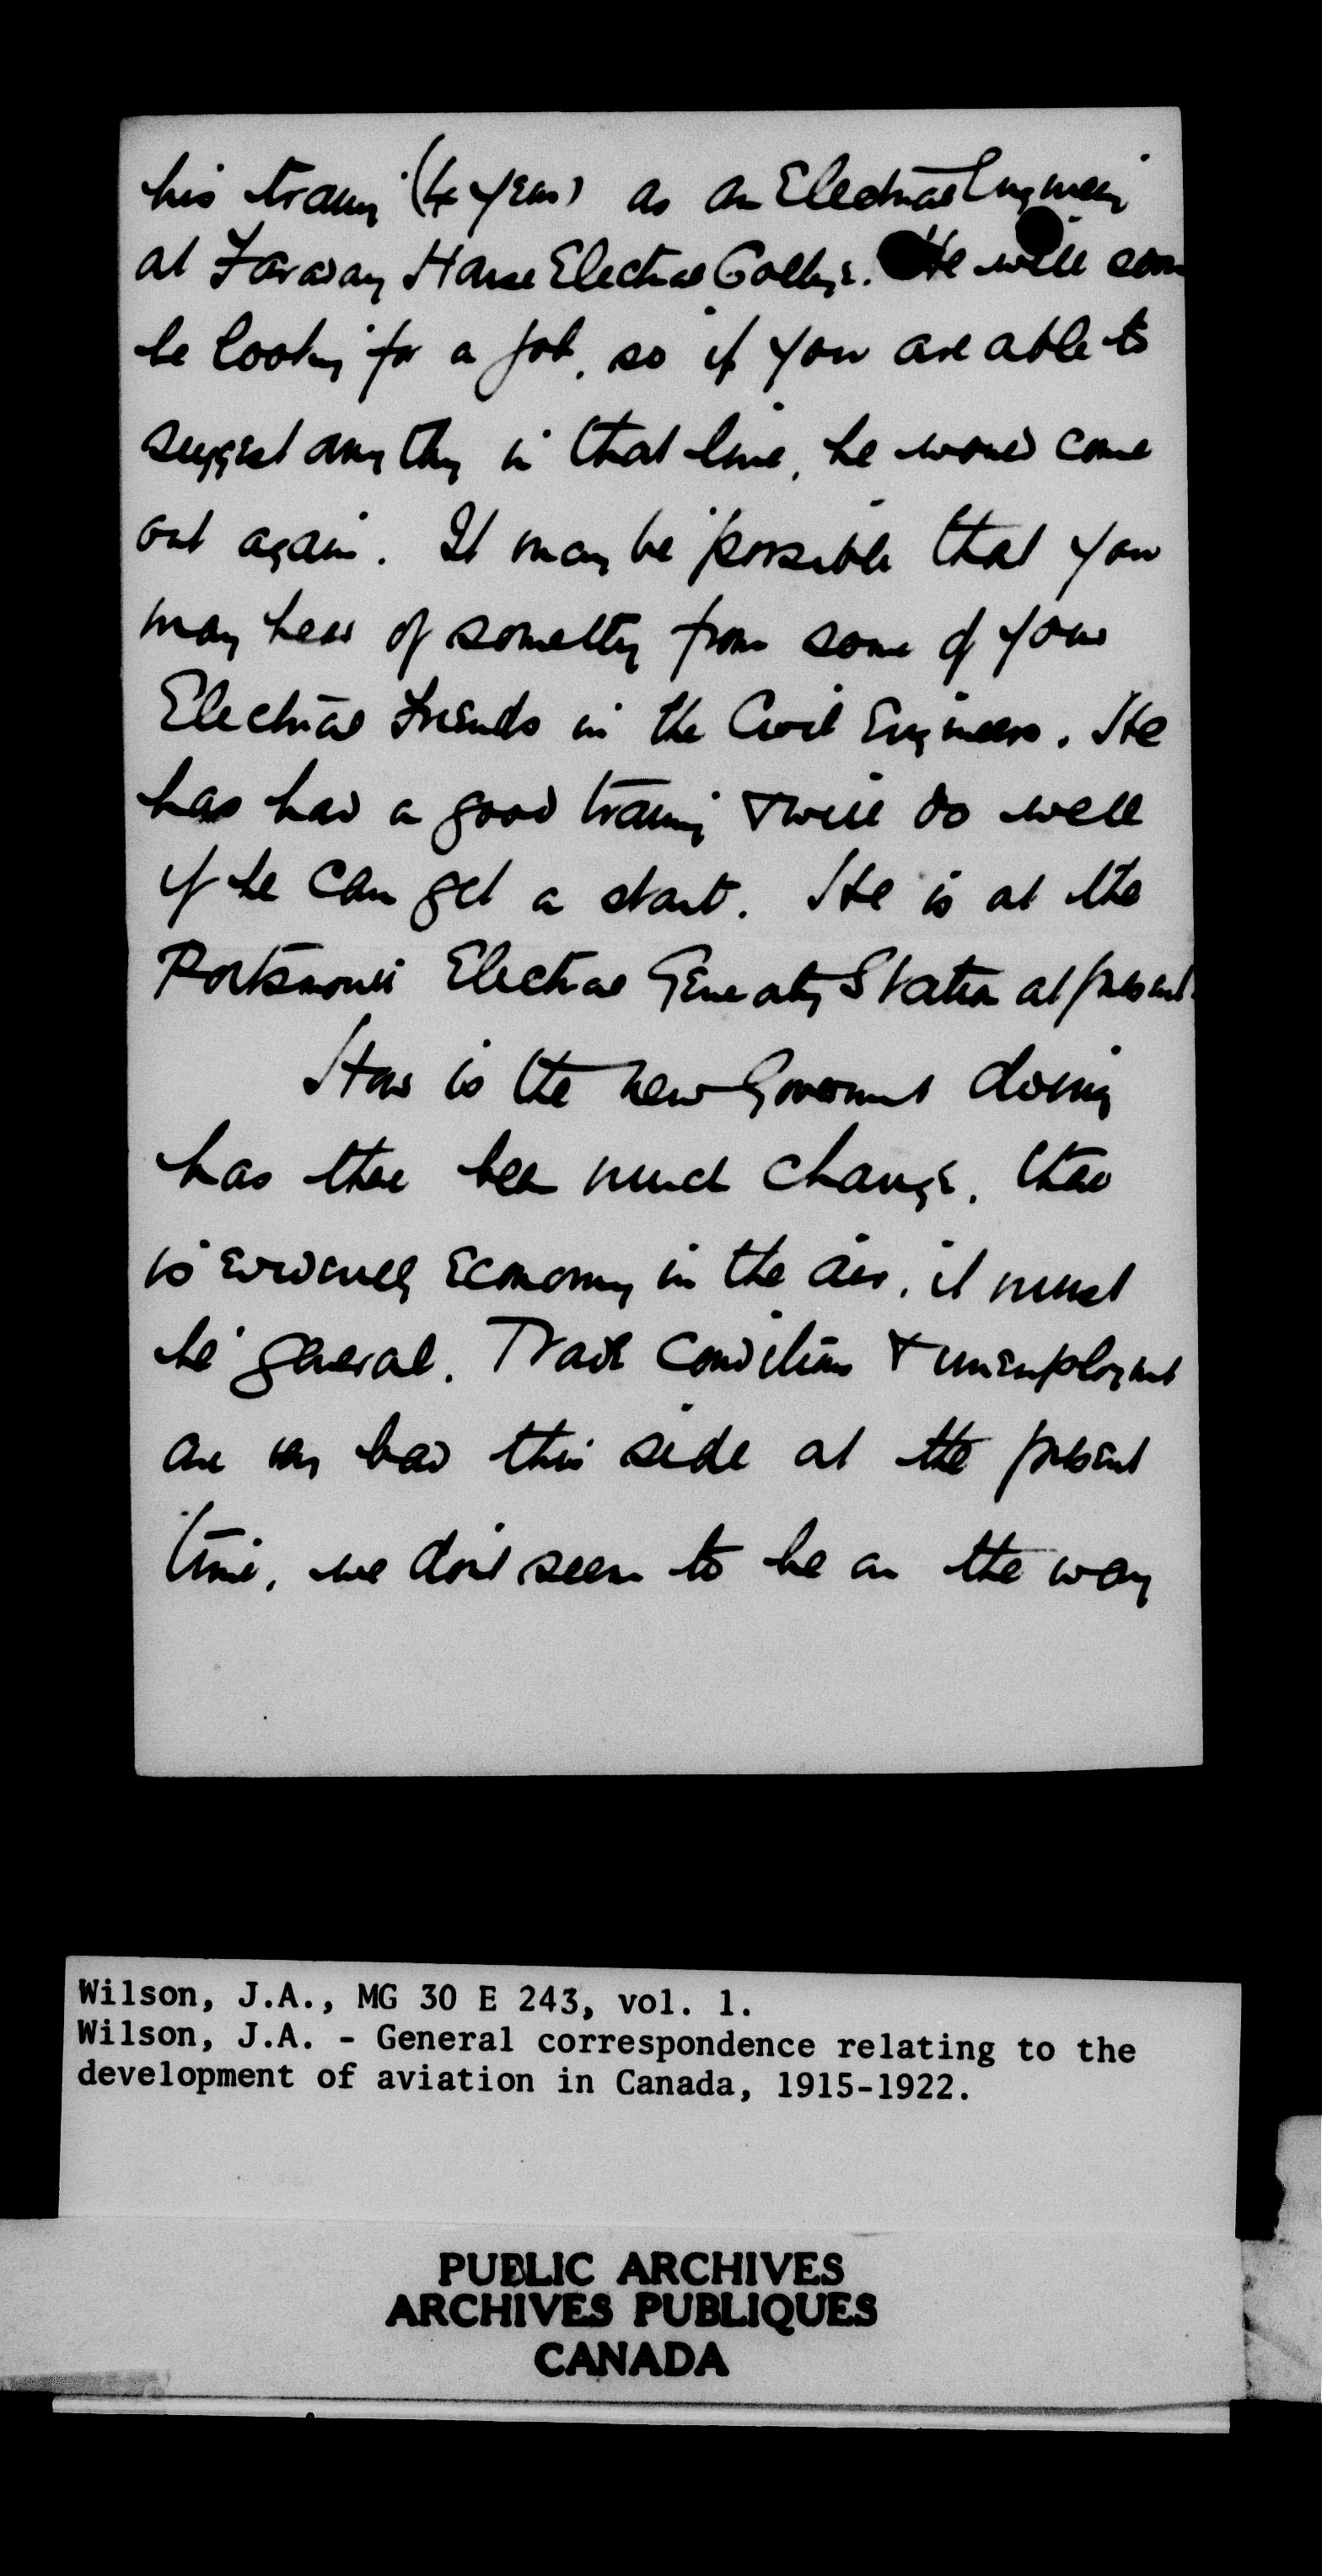 his training (4 years) as an Electrical Engineer
at Faraday House Electrical College. He will soon
be looking for a job, so if you are able to
suggest anything in that line, he would come
out again. It may be possible that you
may hear of something from some of your
Electrical friends in the Civil Engineers. He
has had a good training & will do well
if he can get a start. He is at the
Portsmouth Electrical Generating Station at present.
How is the new Government doing
has there been much change. There
is evidently Economy in the air, it must
be general. Trade conditions & unemployment
are very bad this side at the present
time, we dont seem to be on the way
Wilson, J.A., MG 30 E 243, vol. 1.
Wilson, J.A. - General correspondence relating to the
development of aviation in Canada, 1915-1922.
PUBLIC ARCHIVES
ARCHIVES PUBLIQUES
CANADA